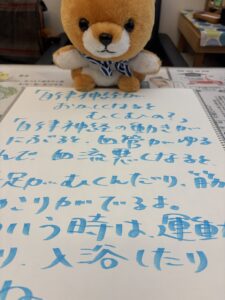 「自律神経が
おかしくなると
むくむの?」
「自律神経の働きが
にぶると、血管がゆる
んで 血流悪くなるよ
足がむくんだり、筋
こりがでるよ。
いう時は、運動
り、入浴したり
ね